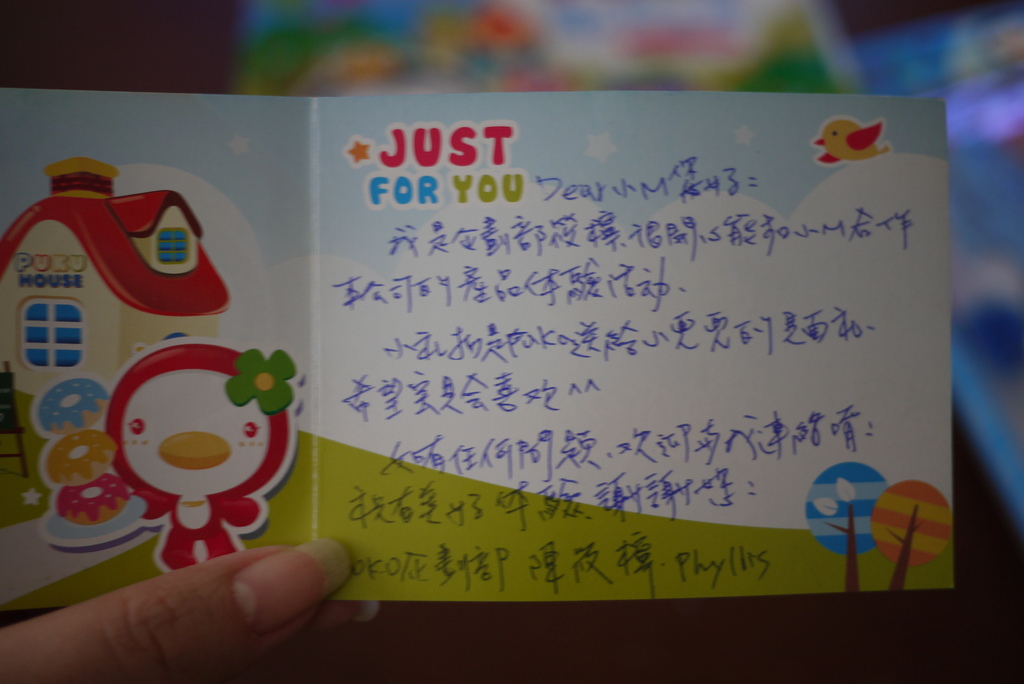 PUKU
HOUSE
JUST
FOR YOU
Dear 小M 您好:
我是企劃部筱樺、很開心能和小M合作
本公司的產品体驗活动、
小礼物是PUKU送給小兜兜的見面礼、
希望寶貝会喜欢^^
如有任何問題、欢迎与我連絡唷:
祝您美好体驗、謝謝您:
企劃部 陳筱樺. Phyllis